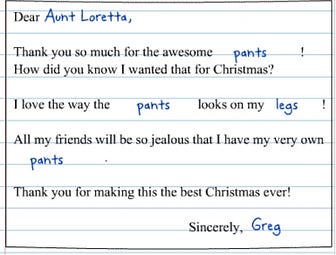 Dear Aunt Loretta,
Thank you so much for the awesome pants !
How did you know I wanted that for Christmas?
I love the way the pants looks on my legs !
All my friends will be so jealous that I have my very own
pants .
Thank you for making this the best Christmas ever!
Sincerely, Greg